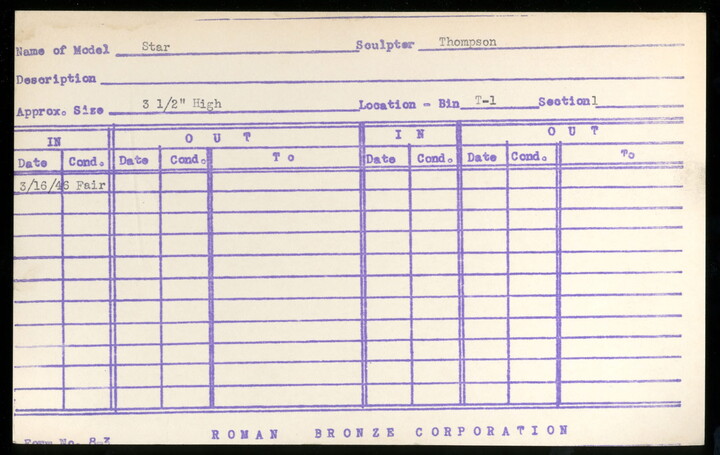 Name of Model Star Sculptor Thompson
Description
Approx. Size 3 1/2" High Location - Bin T-1 Section 1
IN OUT IN OUT
Date Cond. Date Cond. To Date Cond. Date Cond. To
3/16/46 Fair
Form No. 8-3 ROMAN BRONZE CORPORATION